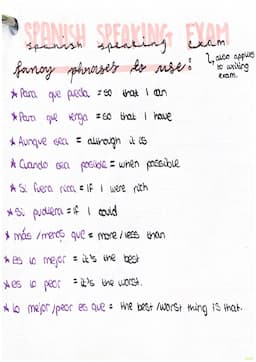 SPANISH SPEAKING EXAM
spanish speaking exam
fancy phrases to use:
also applies to writing exam.
* Para que pueda = so that I can
* Para que tenga = so that I have
* Aunque sea = although it is
* Cuando sea posible = when possible
* Si fuera rica = If I were rich
* Si pudiera = If I could
* más / menos que = more / less than
* es lo mejor = it's the best
* es lo peor = it's the worst.
* lo mejor/peor es que = the best/worst thing is that.